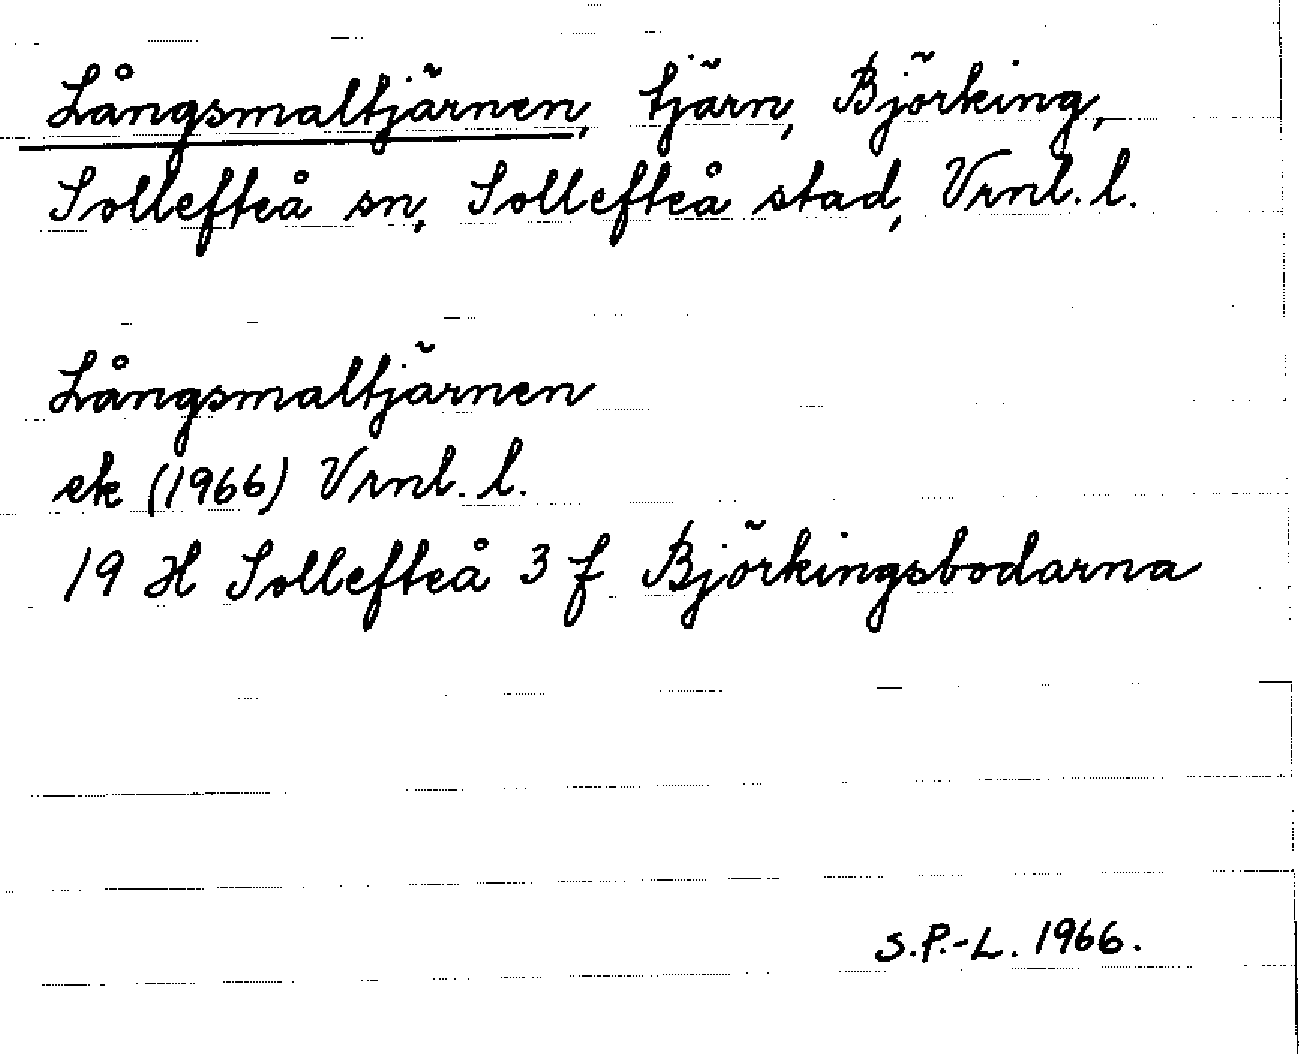 Långsmaltjärnen, tjärn, Björking,
Sollefteå sn, Sollefteå stad, Vrnl. l.
Långsmaltjärnen
ek (1966) Vrnl. l.
19 H Sollefteå 3 f Björkingsbodarna
S.P.-L. 1966.